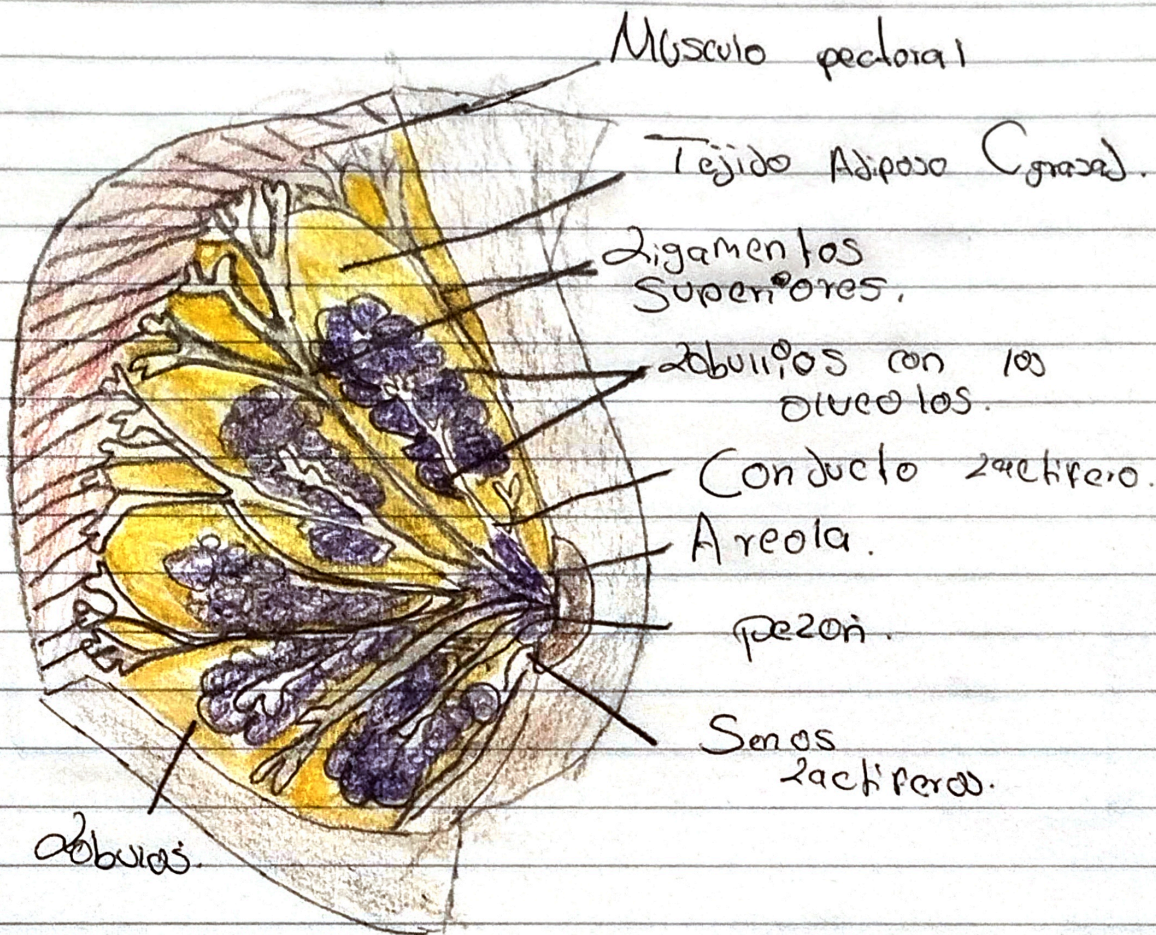 Músculo pectoral
Tejido Adiposo (grasa).
Ligamentos
Superiores.
Lobulillos con los
alveolos.
Conducto Lactifero.
Areola.
pezon.
Senos
Lactiferos.
Lobulos.